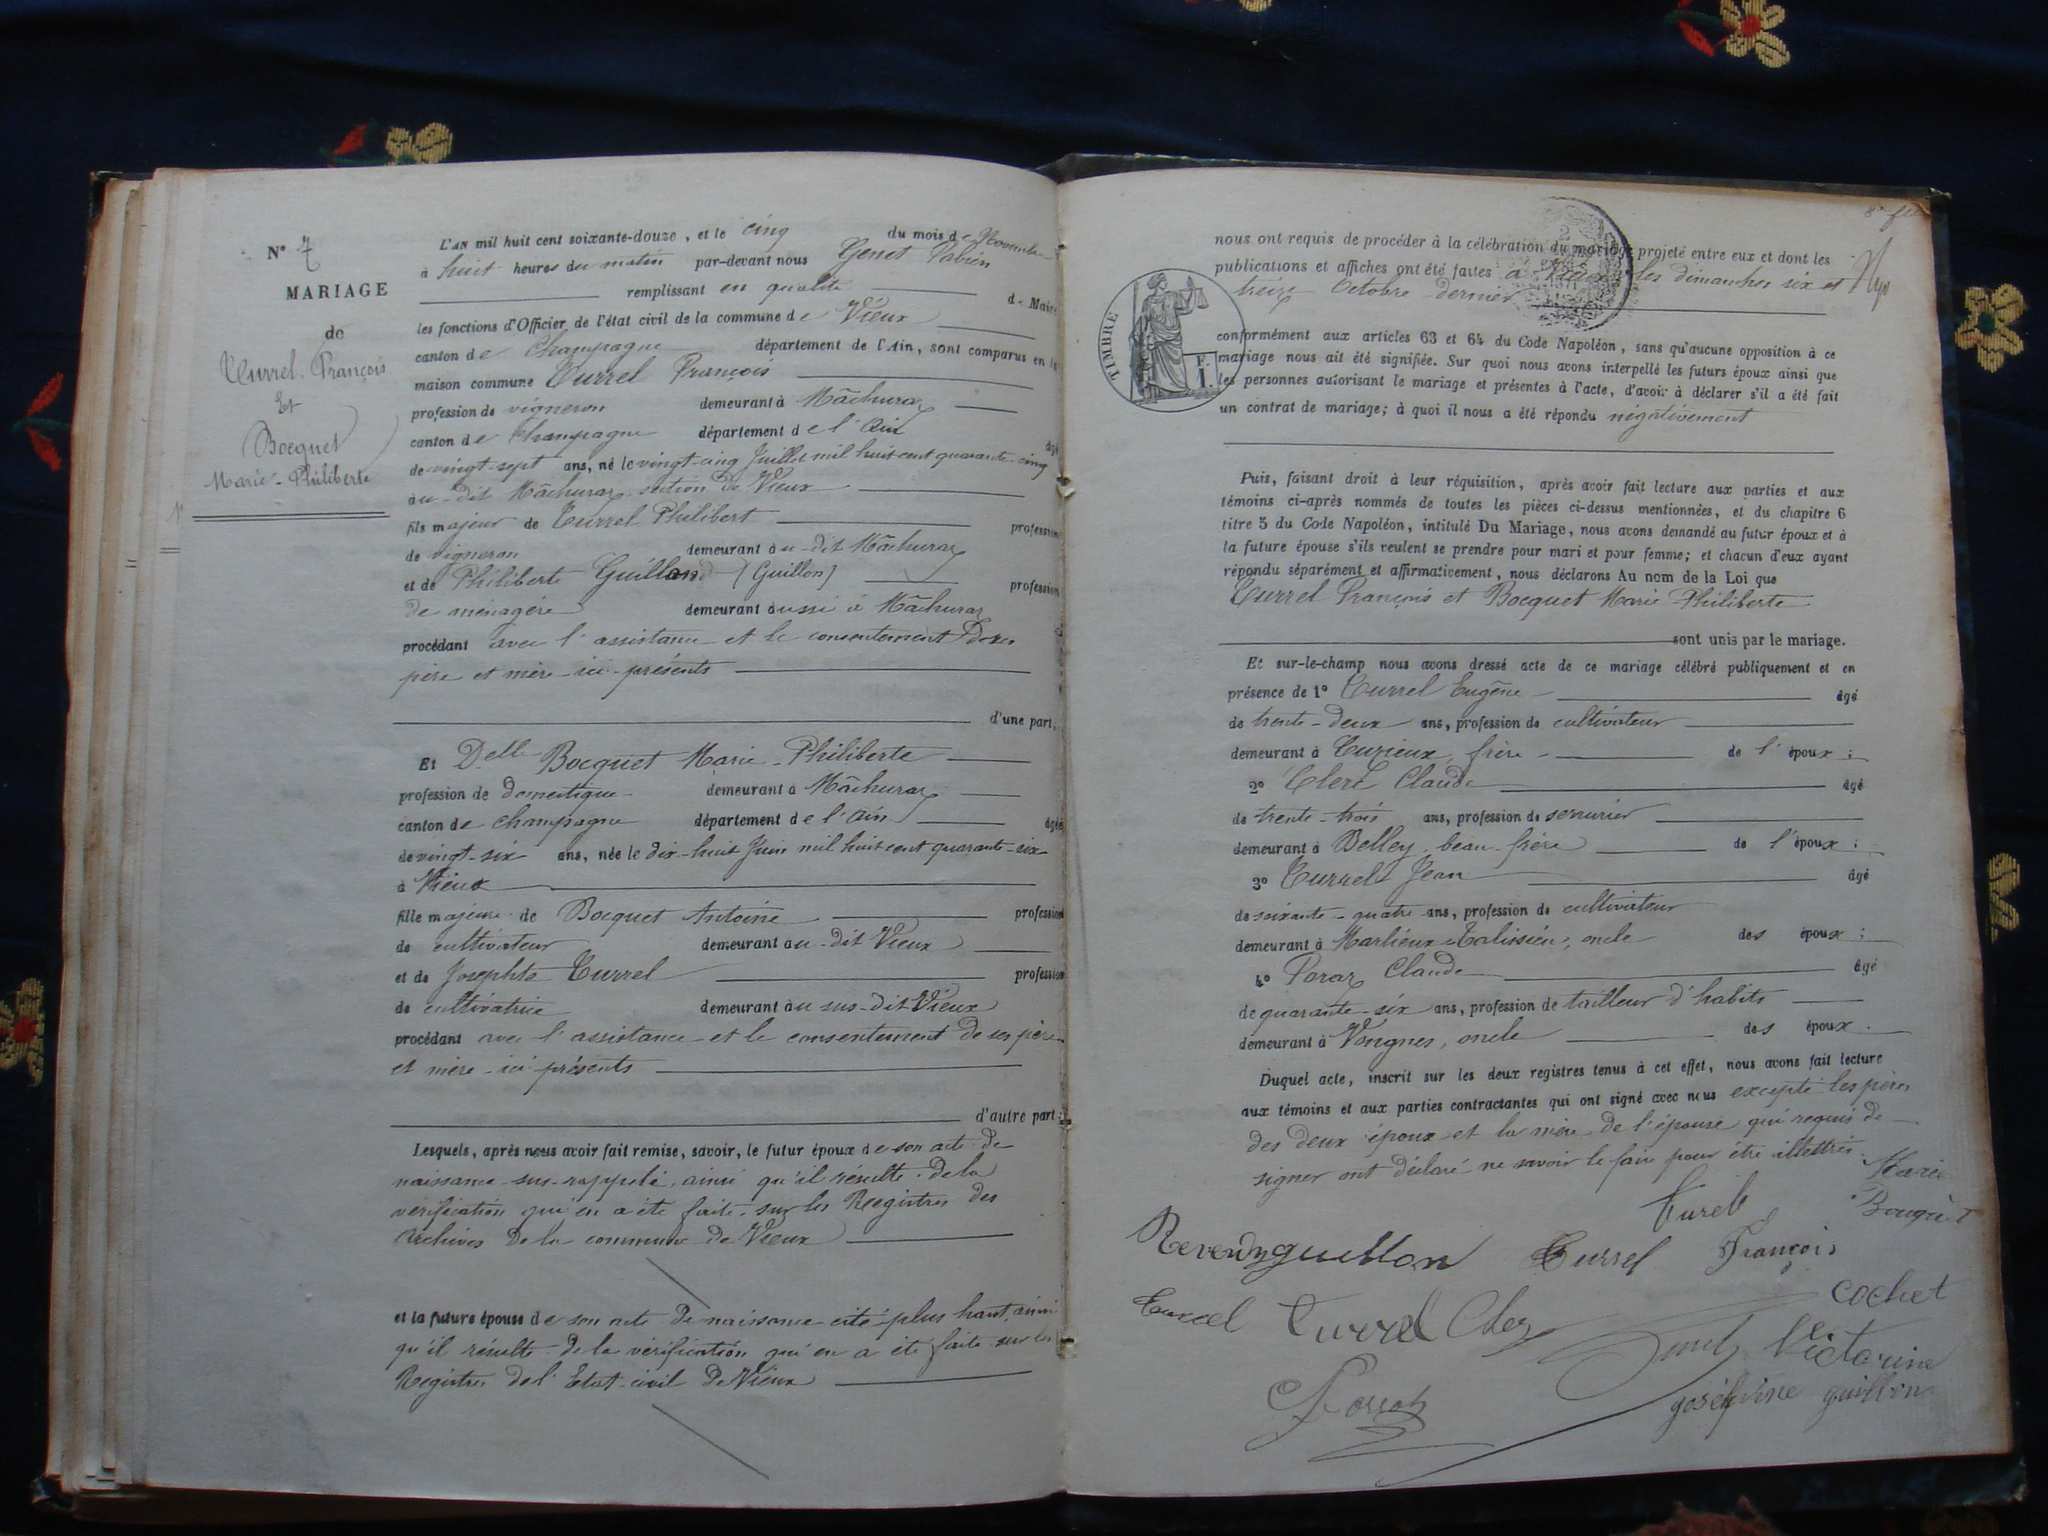 N° 7
MARIAGE
de
Turrel François
Et
Bocquet
Marie-Philiberte
L'AN mil huit cent soixante-douze, et le cinq du mois de Novembre
à huit heures du matin par-devant nous Genet Fabien
remplissant en qualité de Maire
les fonctions d'Officier de l'état civil de la commune de Vieux
canton de Champagne département de l'Ain, sont comparus en la
maison commune Turrel François
profession de vigneron demeurant à Mâchuraz
canton de Champagne département de l'Ain âgé
de vingt-sept ans, né le vingt-cinq Juillet mil huit cent quarante-cinq
au-dit Mâchuraz section de Vieux
fils majeur de Turrel Philibert profession
de vigneron demeurant au-dit Mâchuraz
et de Philiberte Guilland (Guillon) profession
de ménagère demeurant aussi à Mâchuraz
procédant avec l'assistance et le consentement de ses
père et mère ici présents
d'une part,
Et Delle Bocquet Marie-Philiberte
profession de domestique demeurant à Mâchuraz
canton de Champagne département de l'Ain âgée
de vingt-six ans, née le dix-huit Juin mil huit cent quarante-six
à Vieux
fille majeure de Bocquet Antoine profession
de cultivateur demeurant au-dit Vieux
et de Josephte Turrel profession
de cultivatrice demeurant au sus-dit Vieux
procédant avec l'assistance et le consentement de ses père
et mère ici présents
d'autre part;
Lesquels, après nous avoir fait remise, savoir, le futur époux de son acte de
naissance sus-rappelé, ainsi qu'il résulte de la
vérification qui en a été faite sur les Registres des
Archives de la commune de Vieux
et la future épouse de son acte de naissance cité plus haut, ainsi
qu'il résulte de la vérification qui en a été faite sur les
Registres de l'Etat-civil de Vieux
nous ont requis de procéder à la célébration du mariage projeté entre eux et dont les
publications et affiches ont été faites à Vieux les dimanches six et
treize Octobre dernier
TIMBRE
1 F.
conformément aux articles 63 et 64 du Code Napoléon, sans qu'aucune opposition à ce
mariage nous ait été signifiée. Sur quoi nous avons interpellé les futurs époux ainsi que
les personnes autorisant le mariage et présentes à l'acte, d'avoir à déclarer s'il a été fait
un contrat de mariage; à quoi il nous a été répondu négativement
Puis, faisant droit à leur réquisition, après avoir fait lecture aux parties et aux
témoins ci-après nommés de toutes les pièces ci-dessus mentionnées, et du chapitre 6
titre 5 du Code Napoléon, intitulé Du Mariage, nous avons demandé au futur époux et à
la future épouse s'ils veulent se prendre pour mari et pour femme; et chacun d'eux ayant
répondu séparément et affirmativement, nous déclarons Au nom de la Loi que
Turrel François et Bocquet Marie Philiberte
sont unis par le mariage.
Et sur-le-champ nous avons dressé acte de ce mariage célébré publiquement et en
présence de 1° Turrel Eugène âgé
de trente-deux ans, profession de cultivateur
demeurant à Curzieux, frère de l'époux;
2° Clerc Claude âgé
de trente-trois ans, profession de serrurier
demeurant à Belley, beau-frère de l'époux;
3° Turrel Jean âgé
de soixante-quatre ans, profession de cultivateur
demeurant à Marlieux Talissieu, oncle des époux;
4° Poraz Claude âgé
de quarante-six ans, profession de tailleur d'habits
demeurant à Vongnes, oncle des époux.
Duquel acte, inscrit sur les deux registres tenus à cet effet, nous avons fait lecture
aux témoins et aux parties contractantes qui ont signé avec nous excepté les pères
des deux époux et la mère de l'épouse qui requis de
signer ont déclaré ne savoir le faire pour être illettrés.
Marie
Bouquet
Turrel
guillon
Turrel
François
cochet
Turrel
Turrel
Genet
Victorine
joséphine guillon